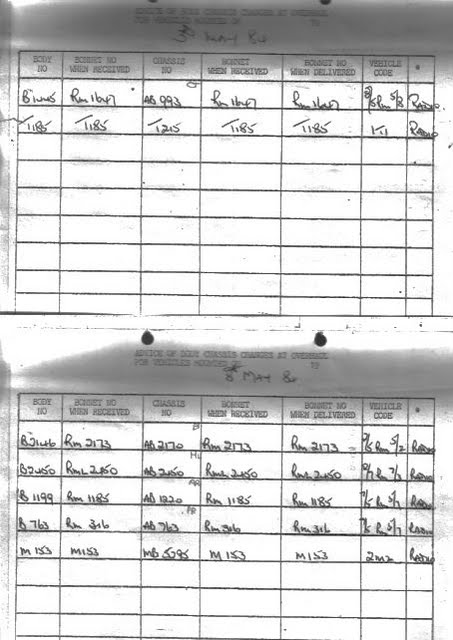 ADVICE OF BODY CHASSIS CHANGES AT OVERHAUL
FOR VEHICLES MOUNTED ON 19
3rd MAY 84
BODY NO BONNET NO WHEN RECEIVED CHASSIS NO BONNET WHEN RECEIVED BONNET WHEN DELIVERED VEHICLE CODE *
Rm 1647 AB 993 Rm 1647 Rm 1647 RADIO
T1185 T1185 T1215 T1185 T1185 1T1 RADIO
ADVICE OF BODY CHASSIS CHANGES AT OVERHAUL
FOR VEHICLES MOUNTED ON 19
MAY 84
BODY NO BONNET NO WHEN RECEIVED CHASSIS NO BONNET WHEN RECEIVED BONNET WHEN DELIVERED VEHICLE CODE *
Rm 2173 AB 2170 Rm 2173 Rm 2173 RADIO
RmL 2450 AB 2450 RmL 2450 RmL 2450 RADIO
B 1199 Rm 1185 AB 1220 Rm 1185 Rm 1185 RADIO
B 763 Rm 316 AB 763 Rm 316 Rm 316 RADIO
M 153 M 153 MB 5095 M 153 M 153 2M2 RADIO